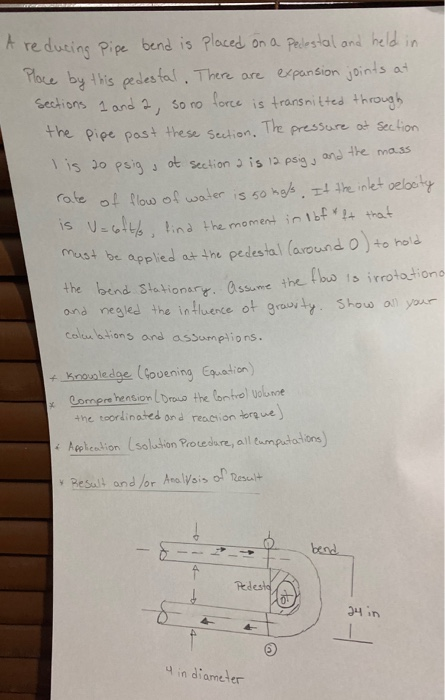 A reducing pipe bend is placed on a pedestal and held in
Place by this pedestal. There are expansion joints at
sections 1 and 2, so no force is transmitted through
the pipe past these section. The pressure at section
1 is 20 psig, at section 2 is 12 psig, and the mass
rate of flow of water is 50 kg/s. If the inlet velocity
is V = 6ft/s, find the moment in lbf * ft that
must be applied at the pedestal (around O) to hold
the bend stationary. Assume the flow is irrotationa
and negled the influence of gravity. Show all your
calculations and assumptions.
* Knowledge (Govening Equation)
* Comprehension (Draw the Control Volume
the coordinated and reaction torque)
* Application (solution Procedure, all computations)
* Result and/or Analysis of Result
1
bend
Pedestal
24 in
2
4 in diameter